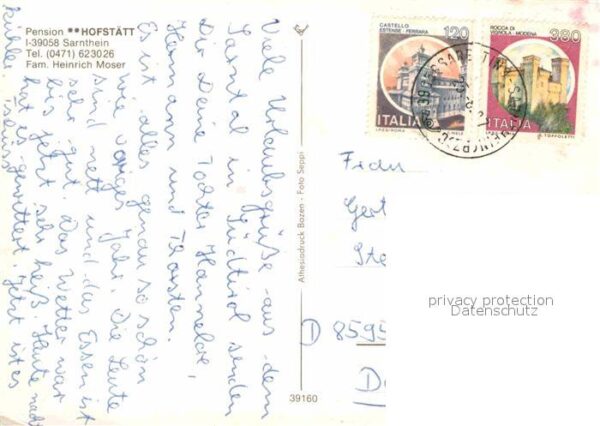 Pension **HOFSTÄTT
I-39058 Sarnthein
Tel. (0471) 623026
Fam. Heinrich Moser
Viele Urlaubsgrüße aus dem
Sarntal in Südtirol senden
Dir Deine Tochter Hannelore,
Hermann und Thorsten.
Es ist alles genau so schön
wie voriges Jahr. Die Leute
sind nett und das Essen ist
sehr gut. Das Wetter war
bis jetzt sehr heiß. Heute nacht
hat es gewittert. Jetzt ist es
kühler.
Athesiadruck Bozen - Foto Seppi
39160
CASTELLO
ESTENSE - FERRARA
120
ITALIA
ROCCA DI
VIGNOLA - MODENA
380
ITALIA
Frau
D 8595
privacy protection
Datenschutz